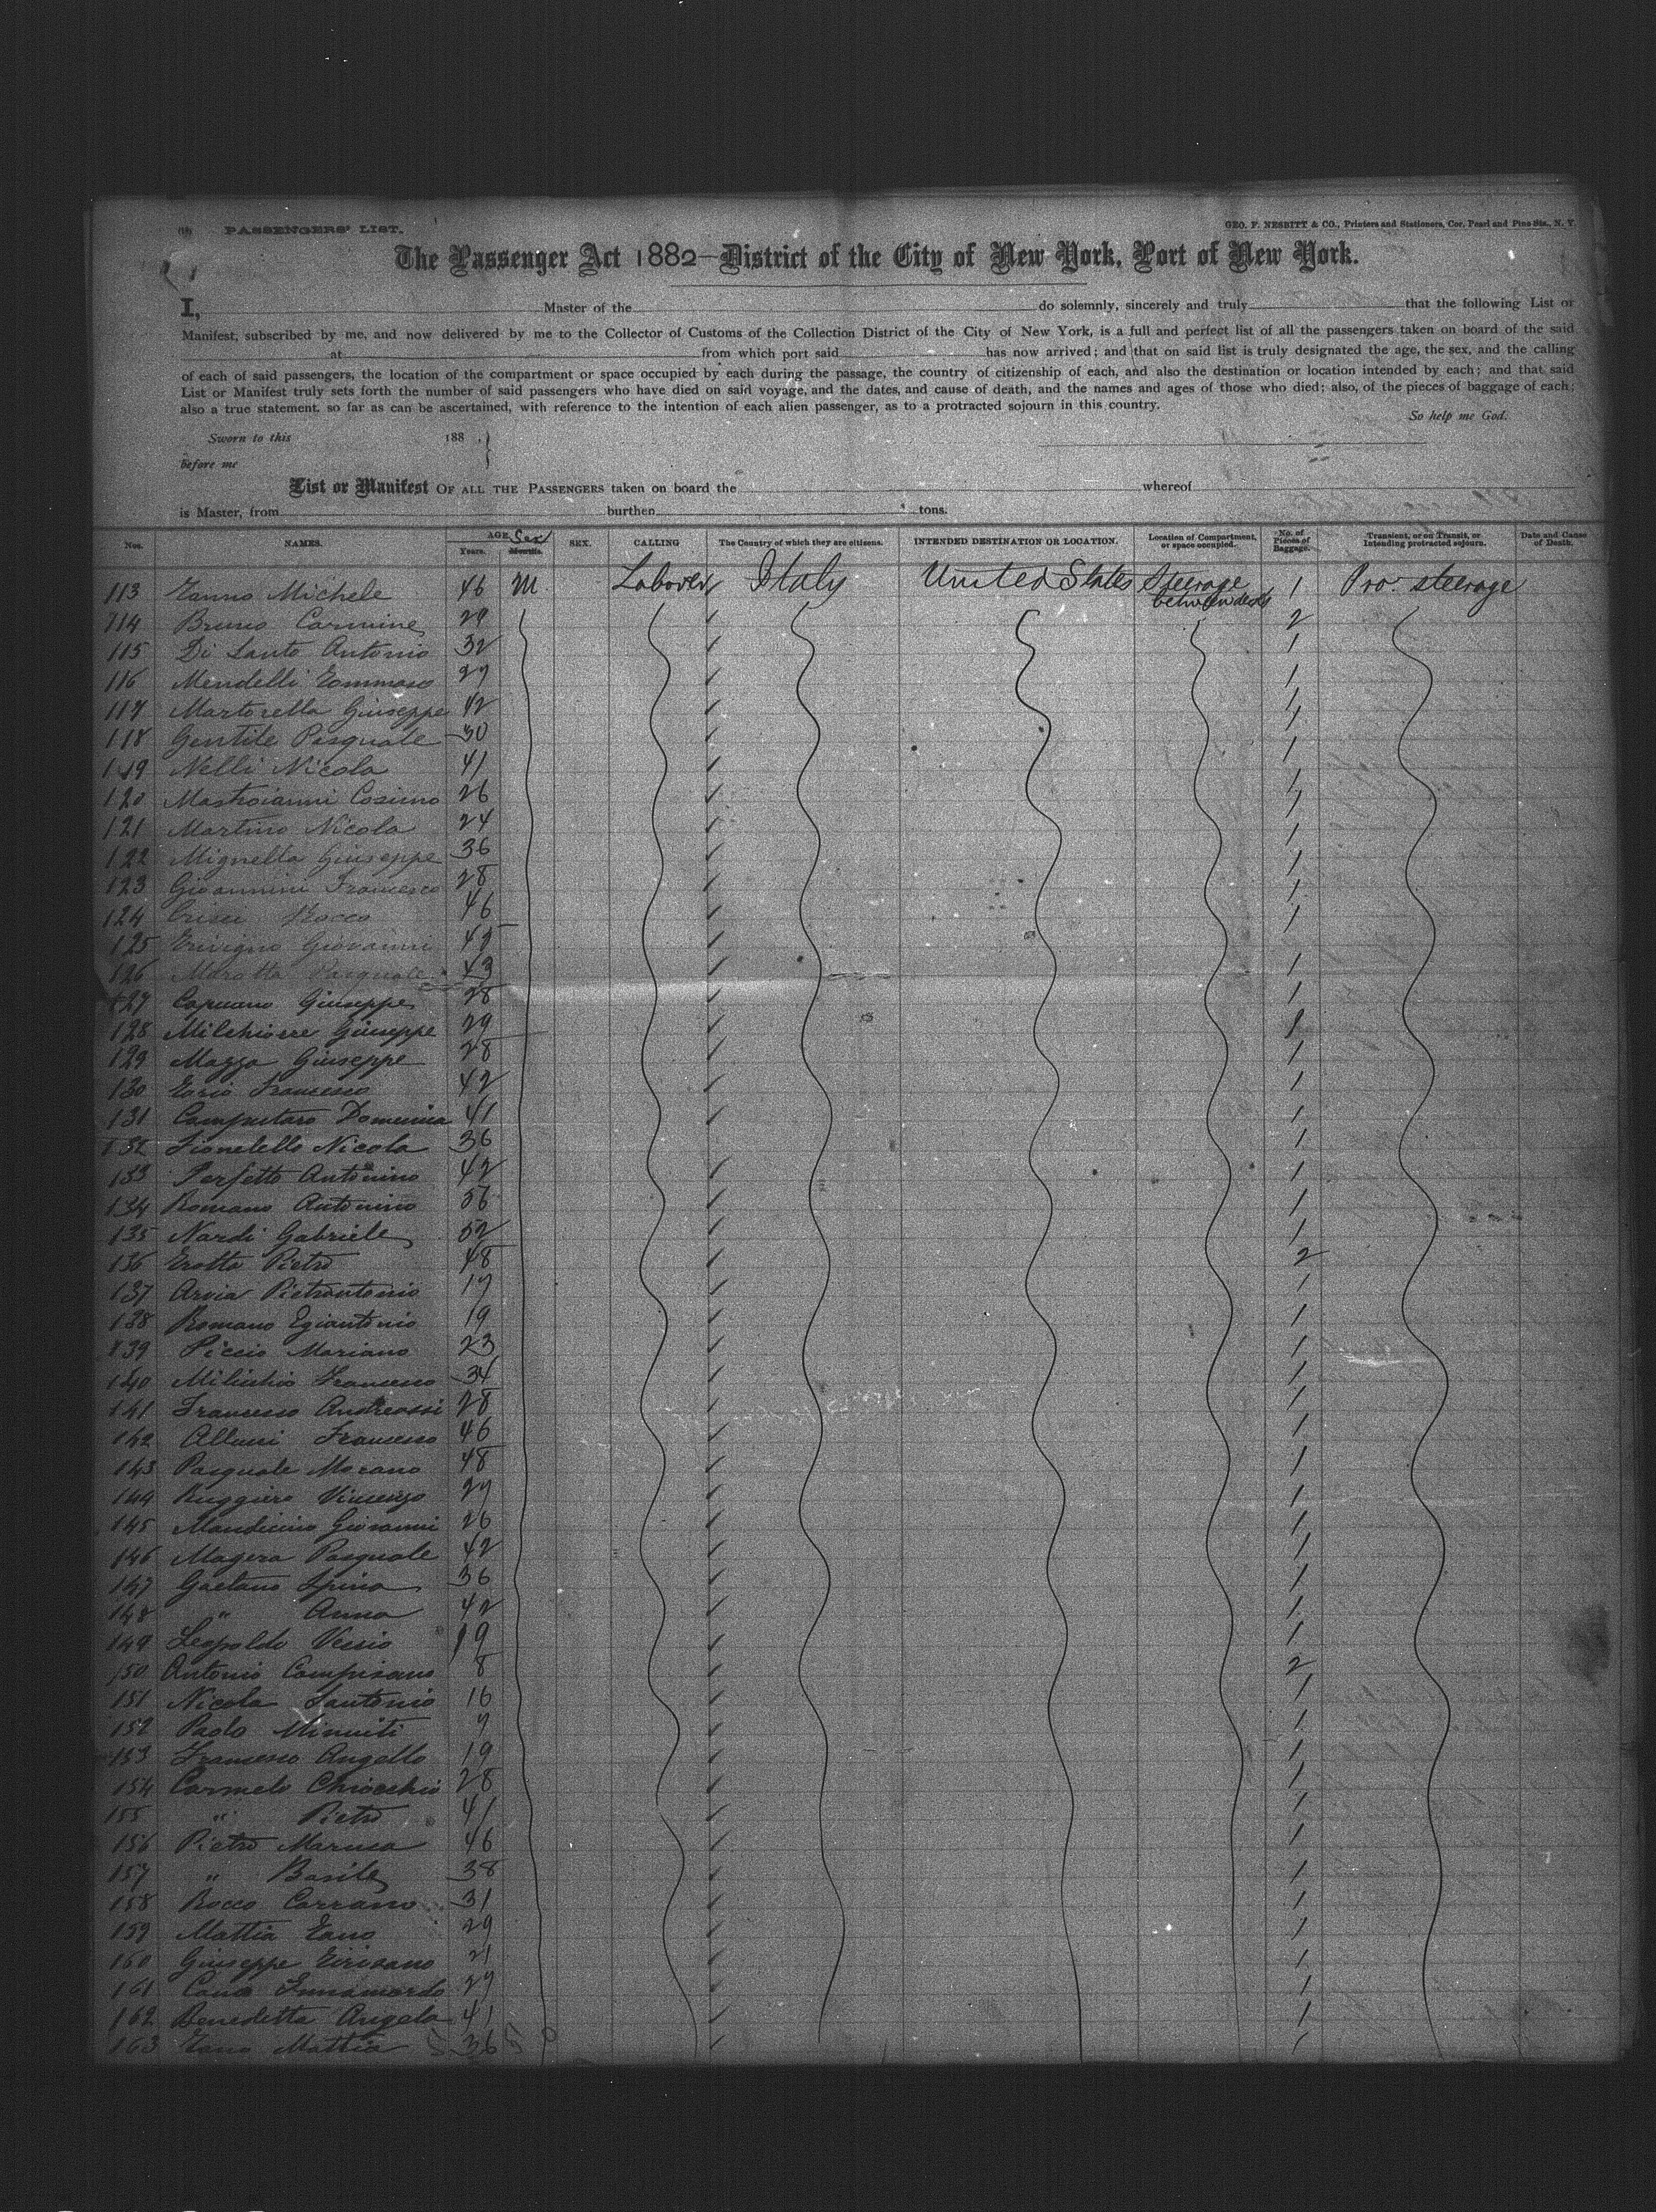 PASSENGERS' LIST.
GEO. F. NESBITT & CO., Printers and Stationers, Cor. Pearl and Pine Sts., N. Y.
The Passenger Act 1882—District of the City of New York, Port of New York.
I, Master of the do solemnly, sincerely and truly that the following List or
Manifest, subscribed by me, and now delivered by me to the Collector of Customs of the Collection District of the City of New York, is a full and perfect list of all the passengers taken on board of the said
at from which port said has now arrived; and that on said list is truly designated the age, the sex, and the calling
of each of said passengers, the location of the compartment or space occupied by each during the passage, the country of citizenship of each, and also the destination or location intended by each; and that said
List or Manifest truly sets forth the number of said passengers who have died on said voyage, and the dates, and cause of death, and the names and ages of those who died; also, of the pieces of baggage of each;
also a true statement, so far as can be ascertained, with reference to the intention of each alien passenger, as to a protracted sojourn in this country.
So help me God.
Sworn to this 188 .
before me
List or Manifest OF ALL THE PASSENGERS taken on board the whereof
is Master, from burthen tons.
Nos. NAMES. AGE. Sex Years. Months. SEX. CALLING The Country of which they are citizens. INTENDED DESTINATION OR LOCATION. Location of Compartment, or space occupied. No. of Pieces of Baggage. Transient, or on Transit, or Intending protracted sojourn. Date and Cause of Death.
113 Michele 46 M Laborer Italy United States Steerage between decks 1 Pro. steerage
114 Bruno Carmine 29 2
115 Di Santo Antonio 32 1
116 Mendelli Tommaso 27 1
117 Martorella Giuseppe 42 1
118 Gentile Pasquale 30 1
119 Nelli Nicola 41 1
120 Mastroianni Cosimo 26 1
121 Martino Nicola 24 1
122 Mignella Giuseppe 36 1
123 Giovannini Francesco 28 1
124 Crisci Rocco 46 1
125 Giovanni
126 Marotta Pasquale 43 1
127 Capuano Giuseppe 28 1
128 Milchiorre Giuseppe 29 1
129 Mazza Giuseppe 28 1
130 Francesco 42 1
131 Domenica 41 1
132 Nicola 36 1
133 Perfetto Antonino 42 1
134 Romano Antonino 36 1
135 Nardi Gabriele 52 1
136 Pietro 48 2
137 Arvia Pietrantonio 17 1
138 Romano Egiantonio 19 1
139 Piccio Mariano 23 1
140 Francesco 34 1
141 Francesco Andreassi 28 1
142 Francesco 46 1
143 Pasquale Morano 48 1
144 Ruggiero Vincenzo 27 1
145 Giovanni 26 1
146 Magera Pasquale 42 1
147 Gaetano Spina 36 1
148 " Anna 42 1
149 Leopoldo Vessio 19 1
150 Antonio Campisano 8 2
151 Nicola Santonio 16 1
152 Paolo Minuiti 7 1
153 Francesco Angello 19 1
154 Carmelo Chiocchio 28 1
155 " Pietro 41 1
156 Pietro Marusa 46 1
157 " Basile 38 1
158 Rocco Carrano 31 1
159 Mattia 29 1
160 Giuseppe 21 1
161 Innamordo 27 1
162 Benedetta Angela 41 1
163 Mattia 36 1